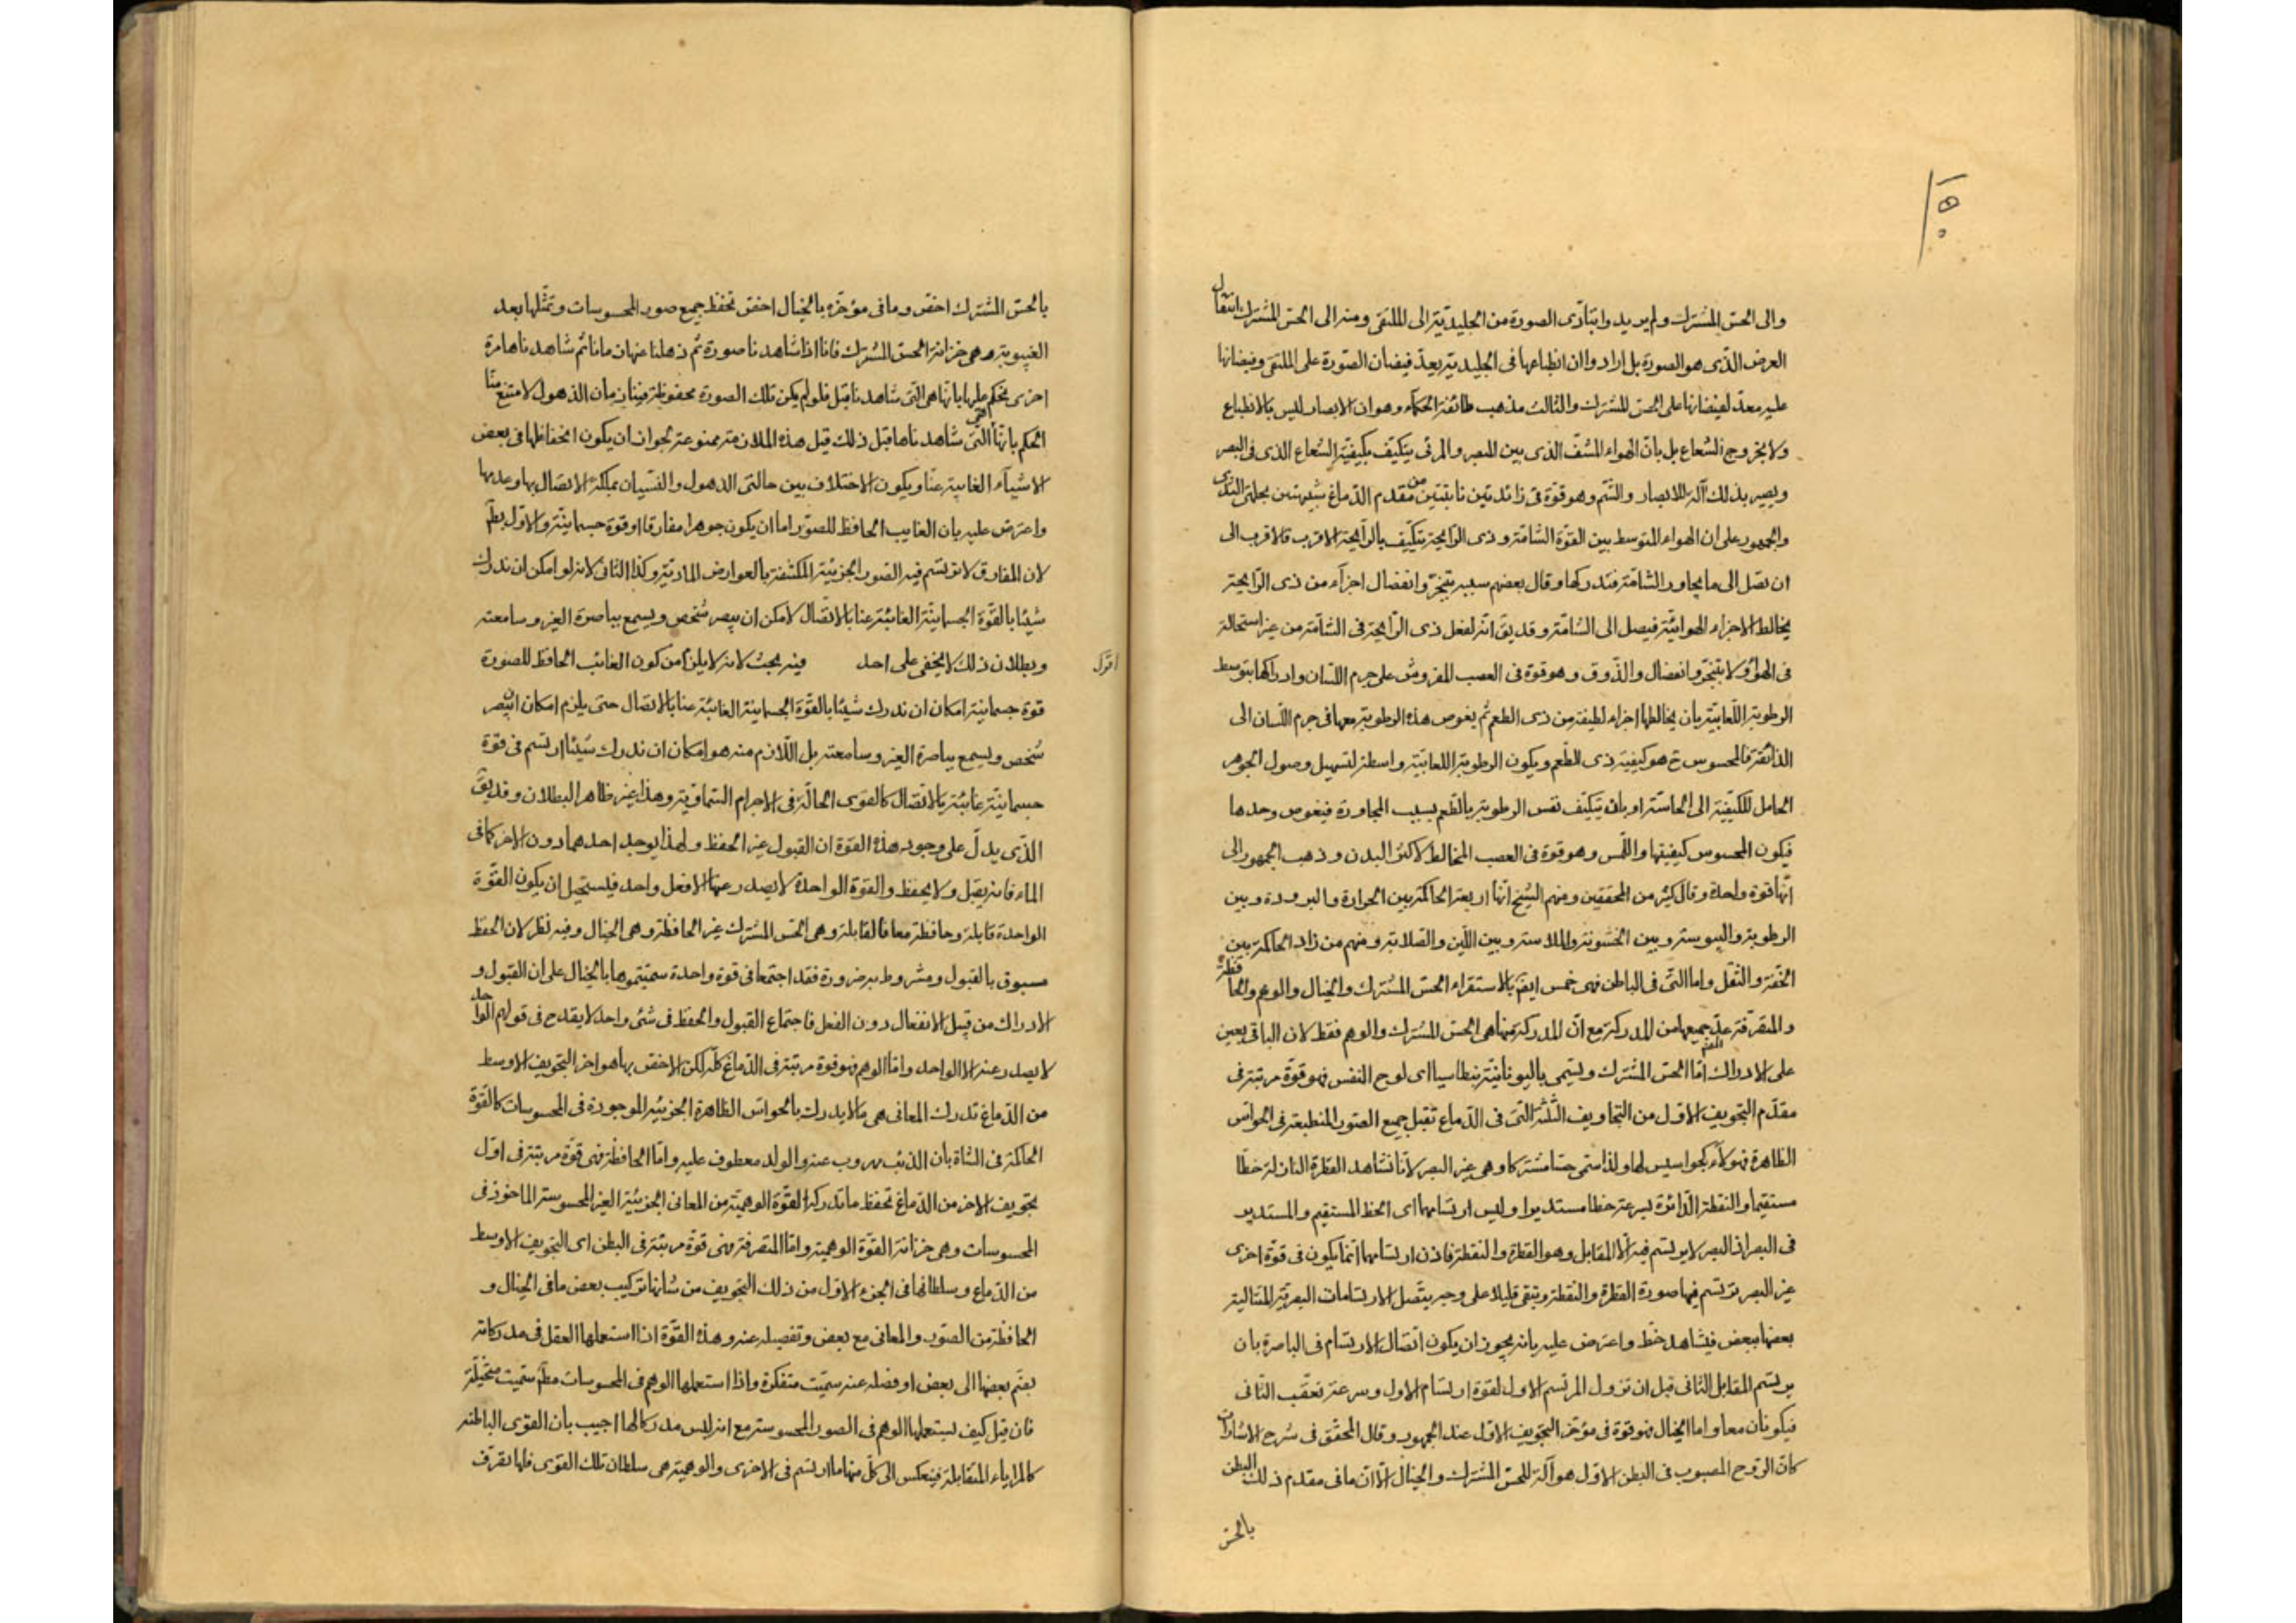 ١٥٠
والى الحس المشترك ولم يريدوا بتأدى الصورة من الجليدية الى الملتقى ومنه الى الحس المشترك انتقال
العرض الذى هو الصورة بل ارادوا ان انطباعها فى الجليدية يعد فيضان الصورة على الملتقى وفيضانها
عليه معد لفيضانها على الحس المشترك والثالث مذهب طائفة الحكماء وهو ان الابصار ليس بالانطباع
ولا بخروج الشعاع بل بان الهواء المشف الذى بين البصر والمرئى يتكيف بكيفية الشعاع الذى فى البصر
ويصير بذلك آلة للابصار والشم وهو قوة فى زائدتين نابتتين من مقدم الدماغ شبيهتين بحلمتى الثدى
والجمهور على ان الهواء المتوسط بين القوة الشامة وذى الرايحة يتكيف بالرايحة الاقرب فالاقرب الى
ان تصل الى ما يجاور الشامة فتدركها وقال بعضهم سببه تبخر وانفصال اجزآء من ذى الرايحة
يخالط الاجزاء الهوائية فيصل الى الشامة وقد يق انه لفعل ذى الرايحة فى الشامة من غير استحالة
فى الهواء ولا بتبخر وانفصال والذوق وهو قوة فى العصب المفروش على جرم اللسان وادراكها بتوسط
الرطوبة اللعابية بان يخالطها اجزاء لطيفة من ذى الطعم ثم يغوص هذه الرطوبة معها فى جرم اللسان الى
الذائقة فالمحسوس ح هو كيفية ذى الطعم ويكون الرطوبة اللعابية واسطة لتسهيل وصول الجوهر
الحامل للكيفية الى الحاسة او بان يتكيف نفس الرطوبة بالطعم بسبب المجاورة فيغوص وحدها
فيكون المحسوس كيفيتها واللمس وهو قوة فى العصب المخالط لاكثر البدن وذهب الجمهور الى
انها قوة واحدة وقال كثير من المحققين ومنهم الشيخ انها اربعة الحاكمة بين الحرارة والبرودة وبين
الرطوبة واليبوسة وبين الخشونة والملاسة وبين اللين والصلابة ومنهم من زاد الحاكمة بين
الخفة والثقل واما التى فى الباطن فهى خمس ايضا بالاستقراء الحس المشترك والخيال والوهم والحافظة
والمتصرفة عد جميعها من المدركة مع ان المدركة منها هى الحس المشترك والوهم فقط لان الباقى يعين
على الادراك اما الحس المشترك ويسمى باليونانية بنطاسيا اى لوح النفس فهو قوة مرتبة فى
مقدم التجويف الاول من التجاويف الثلثة التى فى الدماغ تقبل جميع الصور المنطبعة فى الحواس
الظاهرة فهولاء كجواسيس لها ولذا سمى حسا مشتركا وهى غير البصر لانا نشاهد القطرة النازلة خطا
مستقيما والنقطة الدائرة بسرعة خطا مستديرا وليس ارتسامهما اى الخط المستقيم والمستدير
فى البصر اذ البصر لا يرتسم فيه الا المقابل وهو القطرة والنقطة فاذن ارتسامهما انما يكون فى قوة اخرى
غير البصر ترتسم فيها صورة القطرة والنقطة وتبقى قليلا على وجه يتصل الارتسامات البصرية المتتالية
بعضها ببعض فيشاهد خط واعترض عليه بانه يجوز ان يكون اتصال الارتسام فى الباصرة بان
يرتسم المقابل الثانى قبل ان تزول المرتسم الاول لقوة ارتسام الاول وسرعة تعقب الثانى
فيكونان معا واما الخيال فهو قوة فى مؤخر التجويف الاول عند الجمهور وقال المحقق فى شرح الاشارات
كان الروح المصبوب فى البطن الاول هو آلة للحس المشترك والخيال الا ان ما فى مقدم ذلك البطن
بالحس
بالحس المشترك اخص وما فى مؤخره بالخيال اخص تحفظ جميع صور المحسوسات وتمثلها بعد
الغيبوبة وهى خزانة الحس المشترك فانا اذا شاهدنا صورة ثم ذهلنا عنها زمانا ثم شاهدناها مرة
اخرى نحكم عليها بانها هى التى شاهدنا قبل فلو لم يكن تلك الصورة محفوظة فينا زمان الذهول لامتنع منا
الحكم بانها هى التى شاهدناها قبل ذلك قيل هذه الملازمة ممنوعة لجواز ان يكون انحفاظها فى بعض
الاشيآء الغايبة عنا ويكون الاختلاف بين حالتى الذهول والنسيان بملكة الاتصال بها وعدمها
واعترض عليه بان الغايب الحافظ للصور اما ان يكون جوهرا مفارقا او قوة جسمانية والاول بط
لان المفارق لا ترتسم فيه الصور الجزئية المكتنفة بالعوارض المادية وكذا الثانى لانه لو امكن ان ندرك
شيئا بالقوة الجسمانية الغائبة عنا بالاتصال لامكن ان يبصر شخص ويسمع بباصرة الغير وسامعته
وبطلان ذلك لا يخفى على احد فيه بحث لانه لا يلزم من كون الغائب الحافظ للصورة
اقول
قوة جسمانية امكان ان ندرك شيئا بالقوة الجسمانية الغائبة عنا بالاتصال حتى يلزم امكان ان يبصر
شخص ويسمع بباصرة الغير وسامعته بل اللازم منه هو امكان ان ندرك شيئا ارتسم فى قوة
جسمانية غائبة بالاتصال كالقوى الحالة فى الاجرام السماوية وهذا غير ظاهر البطلان وقد يق
الذى يدل على وجود هذه القوة ان القبول غير الحفظ ولهذا يوجد احدهما دون الاخر كما فى
الماء فانه يقبل ولا يحفظ والقوة الواحدة لا يصدر عنها الا فعل واحد فيستحيل ان يكون القوة
الواحدة قابلة وحافظة معا فالقابلة وهى الحس المشترك غير الحافظة وهى الخيال وفيه نظر لان الحفظ
مسبوق بالقبول ومشروط به ضرورة فقد اجتمعا فى قوة واحدة سميتموها بالخيال على ان القبول و
الادراك من قبيل الانفعال دون الفعل فاجتماع القبول والحفظ فى شئ واحد لا يقدح فى قولهم الواحد
لا يصدر عنه الا الواحد واما الوهم فهو قوة مرتبة فى الدماغ كله لكن الاخص بها هو اخر التجويف الاوسط
من الدماغ تدرك المعانى هى ما لا يدرك بالحواس الظاهرة الجزئية الموجودة فى المحسوسات كالقوة
الحاكمة فى الشاة بان الذئب مهروب عنه والولد معطوف عليه واما الحافظة فهى قوة مرتبة فى اول
تجويف الاخر من الدماغ تحفظ ما تدركه القوة الوهمية من المعانى الجزئية الغير المحسوسة الماخوذ فى
المحسوسات وهى خزانة القوة الوهمية واما المتصرفة فهى قوة مرتبة فى البطن اى التجويف الاوسط
من الدماغ وسلطانها فى الجزء الاول من ذلك التجويف من شانها تركيب بعض ما فى الخيال و
الحافظة من الصور والمعانى مع بعض وتفصيله عنه وهذه القوة اذا استعملها العقل فى مدركاته
بضم بعضها الى بعض او فصله عنه سميت متفكرة واذا استعملها الوهم فى المحسوسات مط سميت متخيلة
فان قيل كيف يستعملها الوهم فى الصور المحسوسة مع انه ليس مدركا لها اجيب بان القوى الباطنه
كالمراياء المتقابلة فينعكس الى كل منها ما ارتسم فى الاخرى والوهمية هى سلطان تلك القوى فلها تصرف